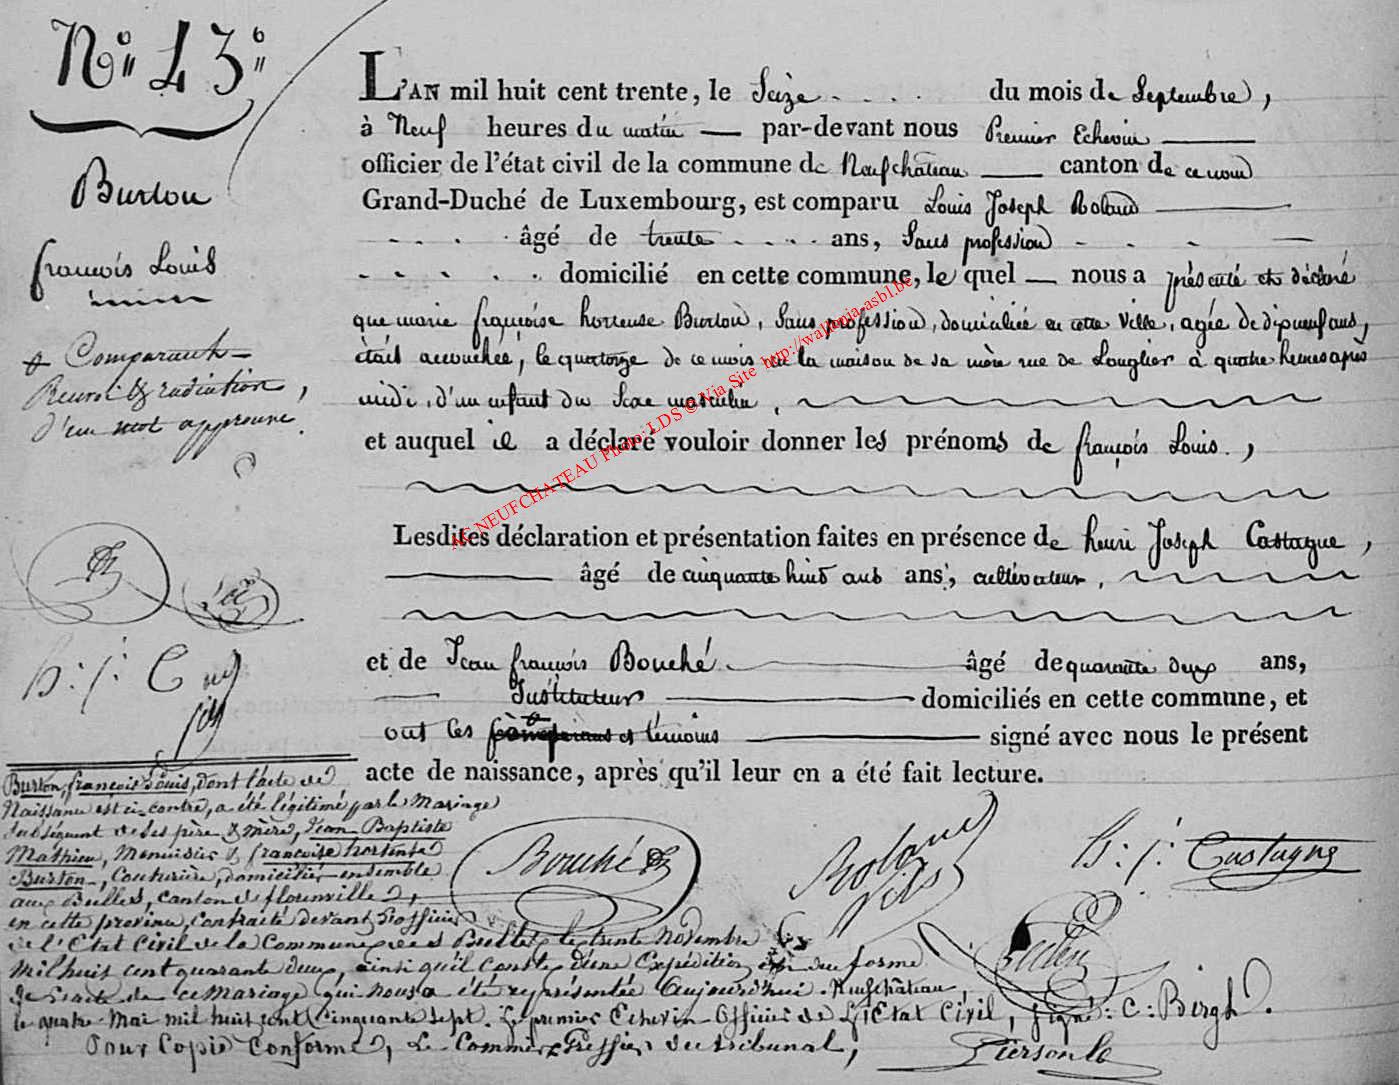 N.º 43.º
Burton
françois Louis
L'AN mil huit cent trente, le Seize du mois de Septembre,
à Neuf heures du matin par-devant nous Premier Echevin
officier de l'état civil de la commune de Neufchâteau canton de ce nom
Grand-Duché de Luxembourg, est comparu Louis Joseph Roland
âgé de trente ans, Sans profession
domicilié en cette commune, le quel nous a présenté et déclaré
que marie françoise hortense Burton, Sans profession, domiciliée en cette Ville, agée de dixneuf ans,
était accouchée, le quatorze de ce mois en la maison de sa mère rue de Longlier à quatre heures après
midi, d'un enfant du Sexe masculin,
et auquel il a déclaré vouloir donner les prénoms de françois Louis.,
Lesdites déclaration et présentation faites en présence de henri Joseph Castagne,
âgé de cinquante huit ans ans, cultivateur,
et de Jean françois Bouché âgé de quarante deux ans,
Instituteur domiciliés en cette commune, et
ont les comparans et témoins signé avec nous le présent
acte de naissance, après qu'il leur en a été fait lecture.
Comparant
Renvoi & radiation,
d'un mot approuvé.
h: j: C
fils
Bouché
Roland fils
h: j: Castagne
Burton, françois Louis, dont l'acte de
Naissance est ci-contre, a été légitimé par le Mariage
subséquent de ses père & mère, Jean Baptiste
Mathieu, Menuisier & françoise hortense
Burton, Couturière, domiciliés ensemble
aux Bulles, canton de florenville,
en cette province, contracté devant l'officier
de l'Etat Civil de la Commune des Bulles, le trente Novembre
Mil huit cent quarante deux, ainsi qu'il conste d'une Expédition en due forme
de l'acte de ce Mariage qui nous a été représentée Aujourd'hui. Neufchâteau,
le quatre Mai mil huit cent cinquante sept. Le premier Echevin Officier de l'Etat Civil, signé: C: Bergh.
Pour Copie Conforme, Le Commis Greffier du tribunal,
Pierson
AC NEUFCHATEAU Photo: LDS © Via Site http://wallonia-asbl.be